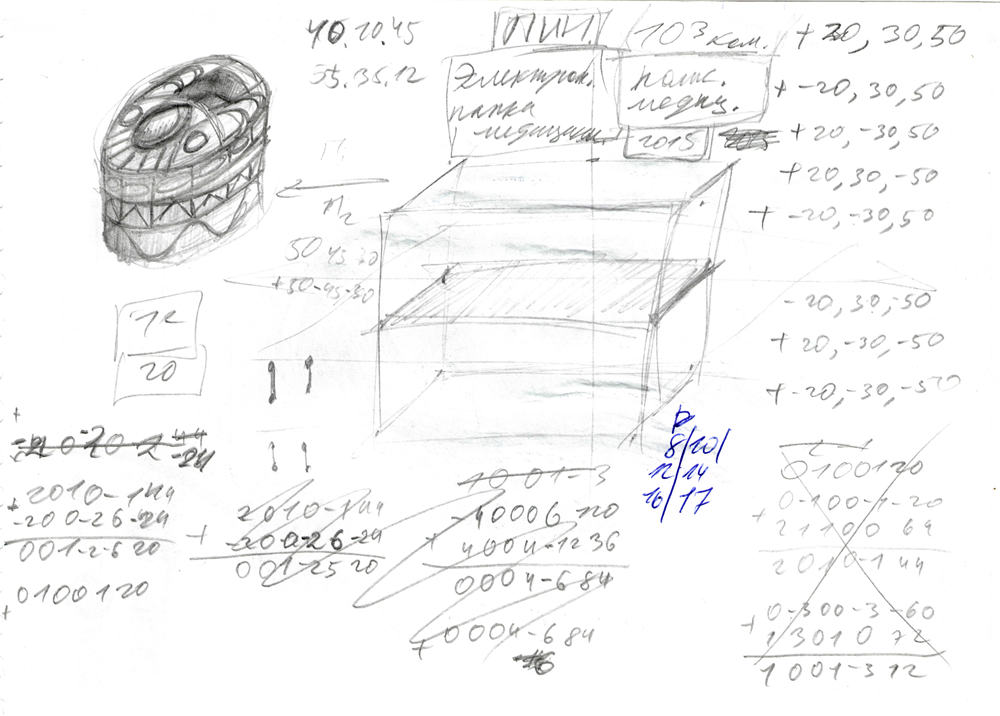 40.20.45
ЛИН.
103 ком.
+20, 30, 50
35.35.12
Электрон.
папка
медицин.
полис.
медиц.
2015
+-20, 30, 50
+20, -30, 50
+20, 30, -50
+-20, -30, 50
50 45 30
+50-45-30
-20, 30, -50
+20, -30, -50
+-20, -30, -50
12
20
8/20/
12/14
16/17
+2010-144
-200-26-24
001-2-620
+0100120
2010-144
+-200-26-24
001-2520
1001-3
-40006-120
+4004-1236
0004-684
+0004-684
0100120
0-100-1-20
+21100 64
2010-144
0-300-3-60
+13010 72
1001-312